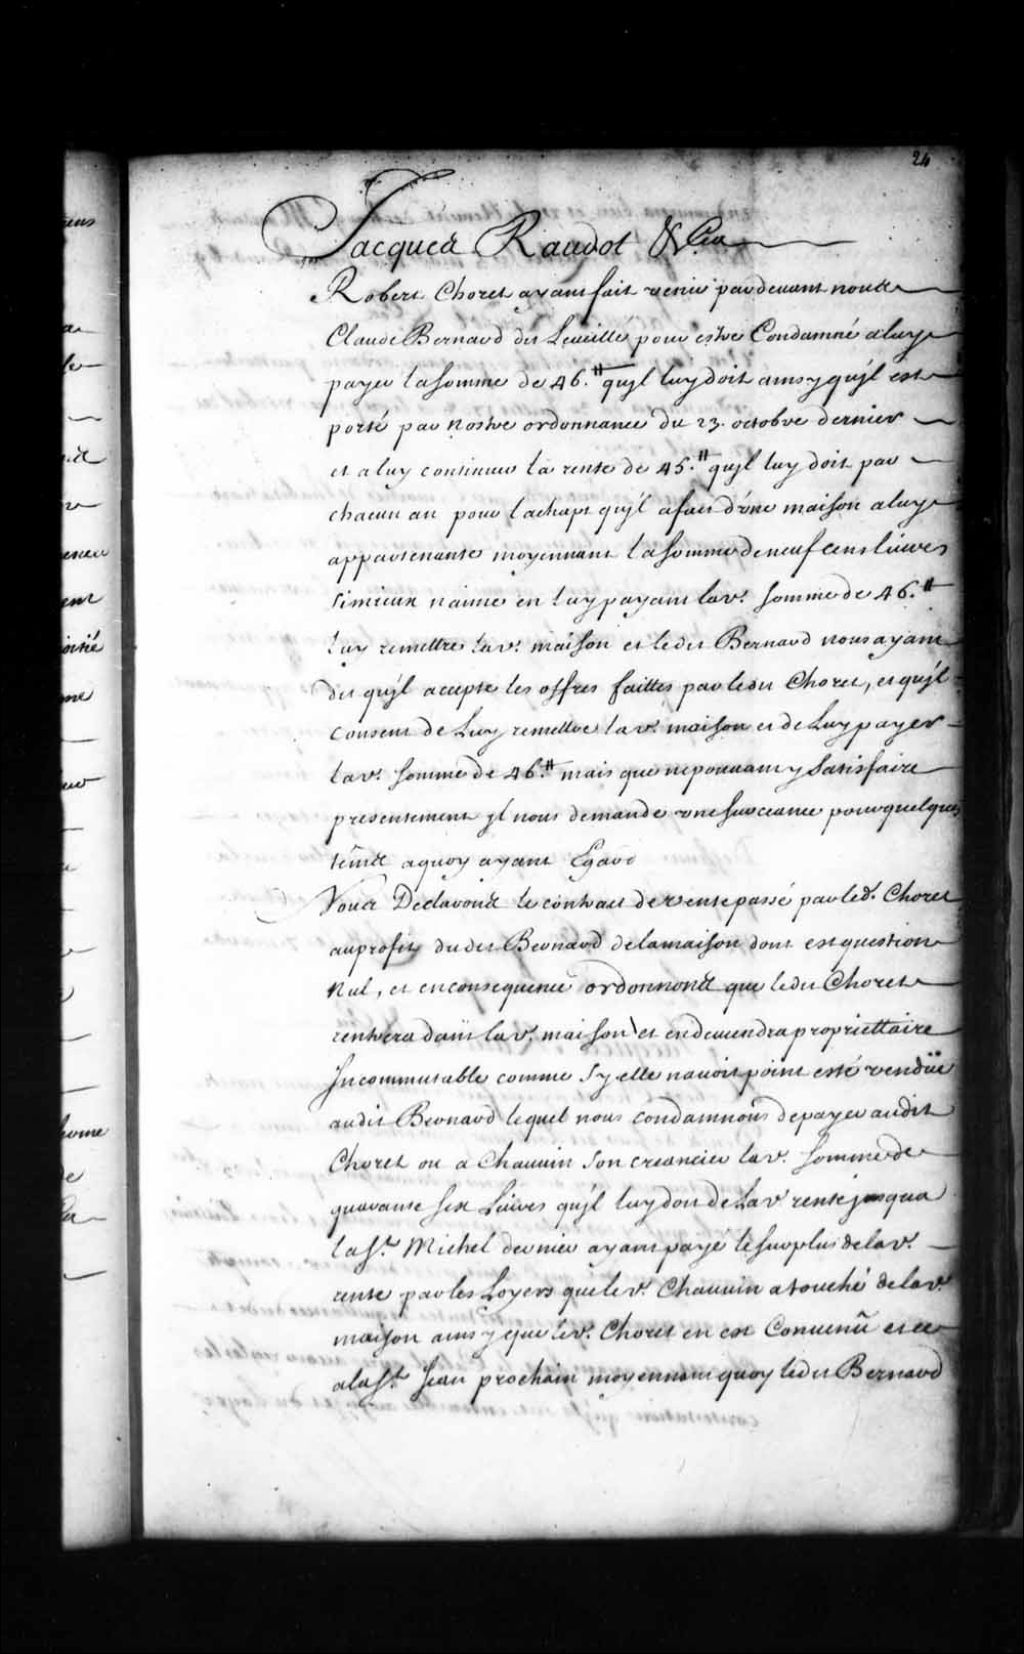 24
Jacques Raudot &c.ra
Robert Choret ayant fait venir pardevant nous
Claude Bernard dit Leveillé pour estre Condamné a luy
payer la somme de 46.ᵗᵗ qu'jl luy doit ainsy qu'jl est
porté par nostre ordonnance du 23. octobre dernier
et a luy continuer la rente de 45.ᵗᵗ qu'jl luy doit par
chacun an pour l'achapt qu'jl a fait d'une maison a luy
appartenante moyennant la somme de neuf cens livres
sy mieux n'aime en luy payant lad. somme de 46.ᵗᵗ
luy remettre lad. maison et ledit Bernard nous ayant
dit qu'jl accepte les offres faittes par ledit Choret, et qu'jl
consent de Luy remettre lad. maison et de Luy payer
lad. somme de 46.ᵗᵗ mais que ne pouvant y Satisfaire
presentement jl nous demande une surceance pour quelques
tems a quoy ayant Egard
Nous Declarons le contract de vente passé par led. Choret
au profit dudit Bernard de la maison dont est question
Nul, et en consequence ordonnons que ledit Choret
rentrera dans lad. maison et en deviendra propriettaire
Jncommutable comme sy elle n'avoit point esté vendüe
audit Bernard lequel nous condamnons de payer audit
Choret ou a Chauvin son creancier lad. somme de
quarante six Livres qu'jl luy doit de Lad. rente jusqu'a
la S.t Michel dernier ayant payé le surplus de lad.
rente par les Loyers que led. Chauvin a touché de lad.
maison ainsy que led. Choret en est Convenû et ce
a la S.t Jean prochain moyennant quoy ledit Bernard